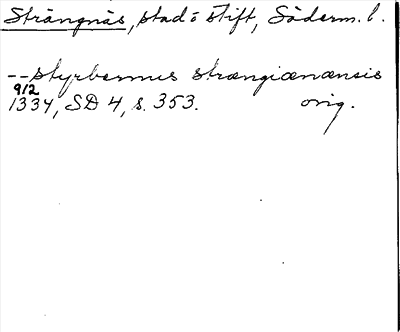 Strängnäs, stad o stift, Söderm. l.
-- styrbernus strængiænænsis
9/2
1334, SD 4, s. 353. orig.